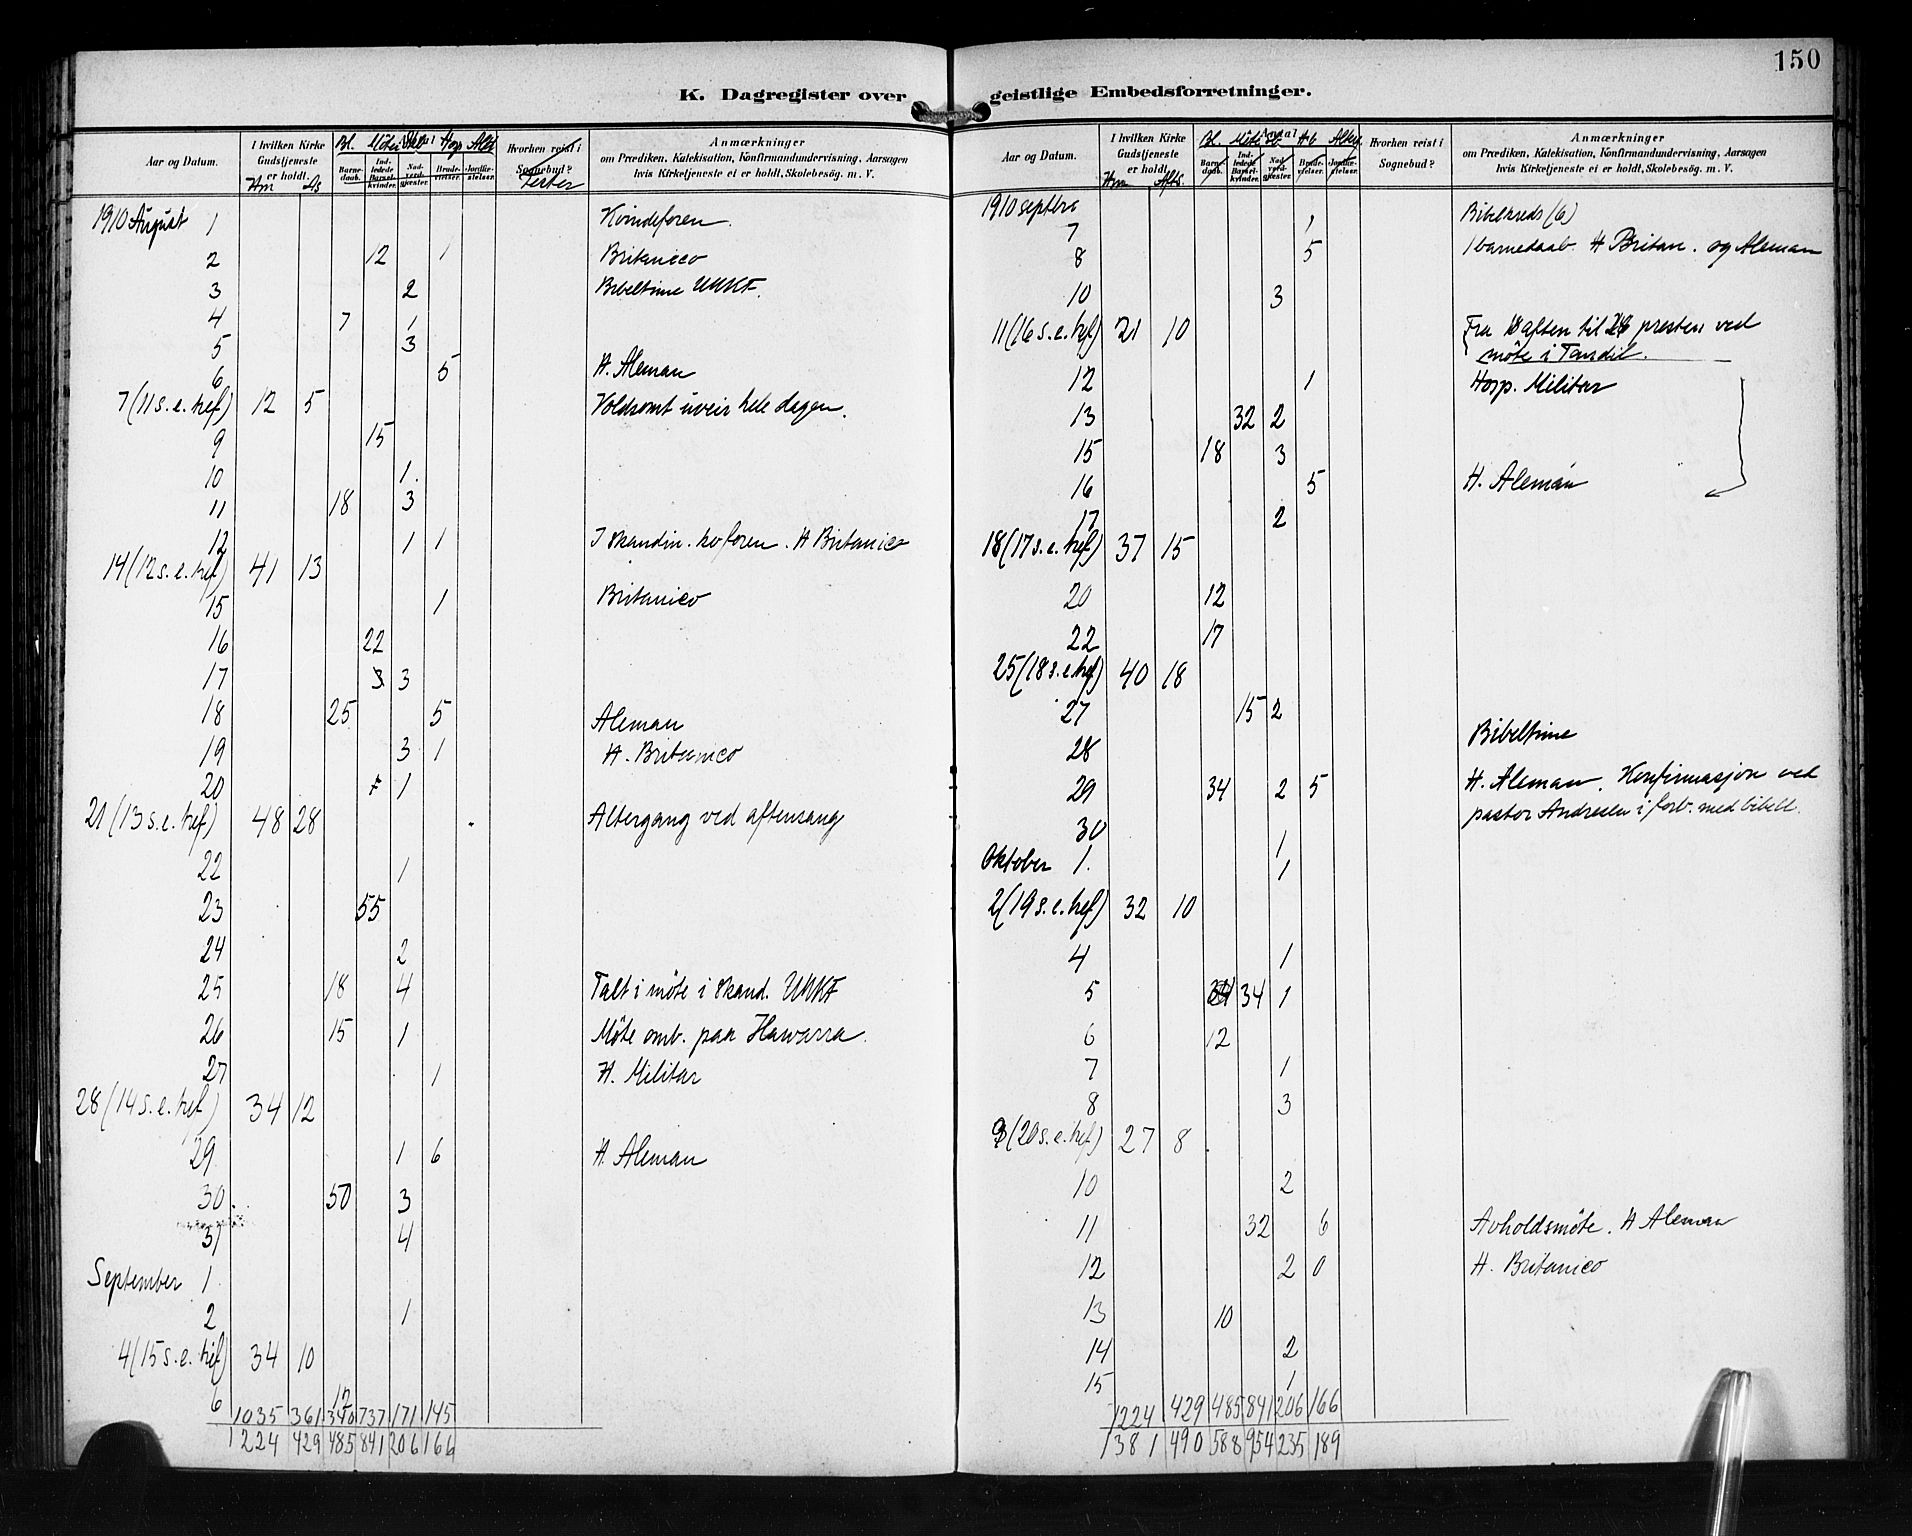 150
K. Dagregister over geistlige Embedsforretninger.
Aar og Datum. I hvilken Kirke Gudstjeneste er holdt. Barne-daab. Ind-ledede Barsel-kvinder. Nad-verd-gjester. Brude-vielser. Jordfæ-stelser. Hvorhen reist i Sognebud? Anmærkninger om Prædiken, Katekisation, Konfirmandundervisning, Aarsagen hvis Kirketjeneste ei er holdt, Skolebesøg. m. V.
Hm As Bl. Møter Hosp
1910 August 1 Kvindeforen.
2 12 1 Britanico
3 2 Bibeltime UKKF.
4 7 1
5 3
6 5 H. Aleman
7 (11 s. e. tref) 12 5 Voldsomt uveir hele dagen.
9 15
10 1.
11 18 3
12 1 1 I skandin. hoforen. H Britanico
14 (12 s. e. tref) 41 13
15 1 Britanico
16 22
17 3 3
18 25 5 Aleman
19 3 1 H. Britanico
20 1
21 (13 s. e. tref) 48 28 Altergang ved aftensang
22 1
23 55
24 2
25 18 4 Talt i møte i skand. UKKF
26 15 1 Møte omb. paa Hawarra.
27 1 H. Militar
28 (14 s. e. tref) 34 12
29 1 6 H. Aleman
30 50 3
31 4
September 1
2 1
4 (15 s. e. tref) 34 10
6 12
1035 361 340 737 171 145
1224 429 485 841 206 166
Aar og Datum. I hvilken Kirke Gudstjeneste er holdt. Antal Barne-daab. Ind-ledede Barsel-kvinder. Nad-verd-gjester. Brude-vielser. Jordfæ-stelser. Hvorhen reist i Sognebud? Anmærkninger om Prædiken, Katekisation, Konfirmandundervisning, Aarsagen hvis Kirketjeneste ei er holdt, Skolebesøg. m. V.
Hm Afts. Bl. Møte
1910 septbre
7 1 Bibelkreds (6)
8 5 1 barnedaab. H Britan. og Aleman
10 3
11 (16 s. e. tref) 21 10 Fra 18 aften til 28 presten ved
møte i Tandil.
12 1 Hosp. Militar
13 32 2
15 18 3
16 5 H. Alemán
17 2
18 (17 s. e. tref) 37 15
20 12
22 17
25 (18 s. e. tref) 40 18
27 15 2
28 Bibeltime
29 34 2 5 H. Aleman. Konfirmasjon ved
pastor Andresen i forb. med bibelt.
30 1
Oktober 1. 1
2 (19 s. e. tref) 32 10
4 1
5 34 1
6 12
7 1
8 3
9 (20 s. e. tref) 27 8
10 2
11 32 6 Avholdsmøte. H Aleman
12 2 0 H. Britanico
13 10
14 2
15 1
1224 429 485 841 206 166
1381 490 588 954 235 189